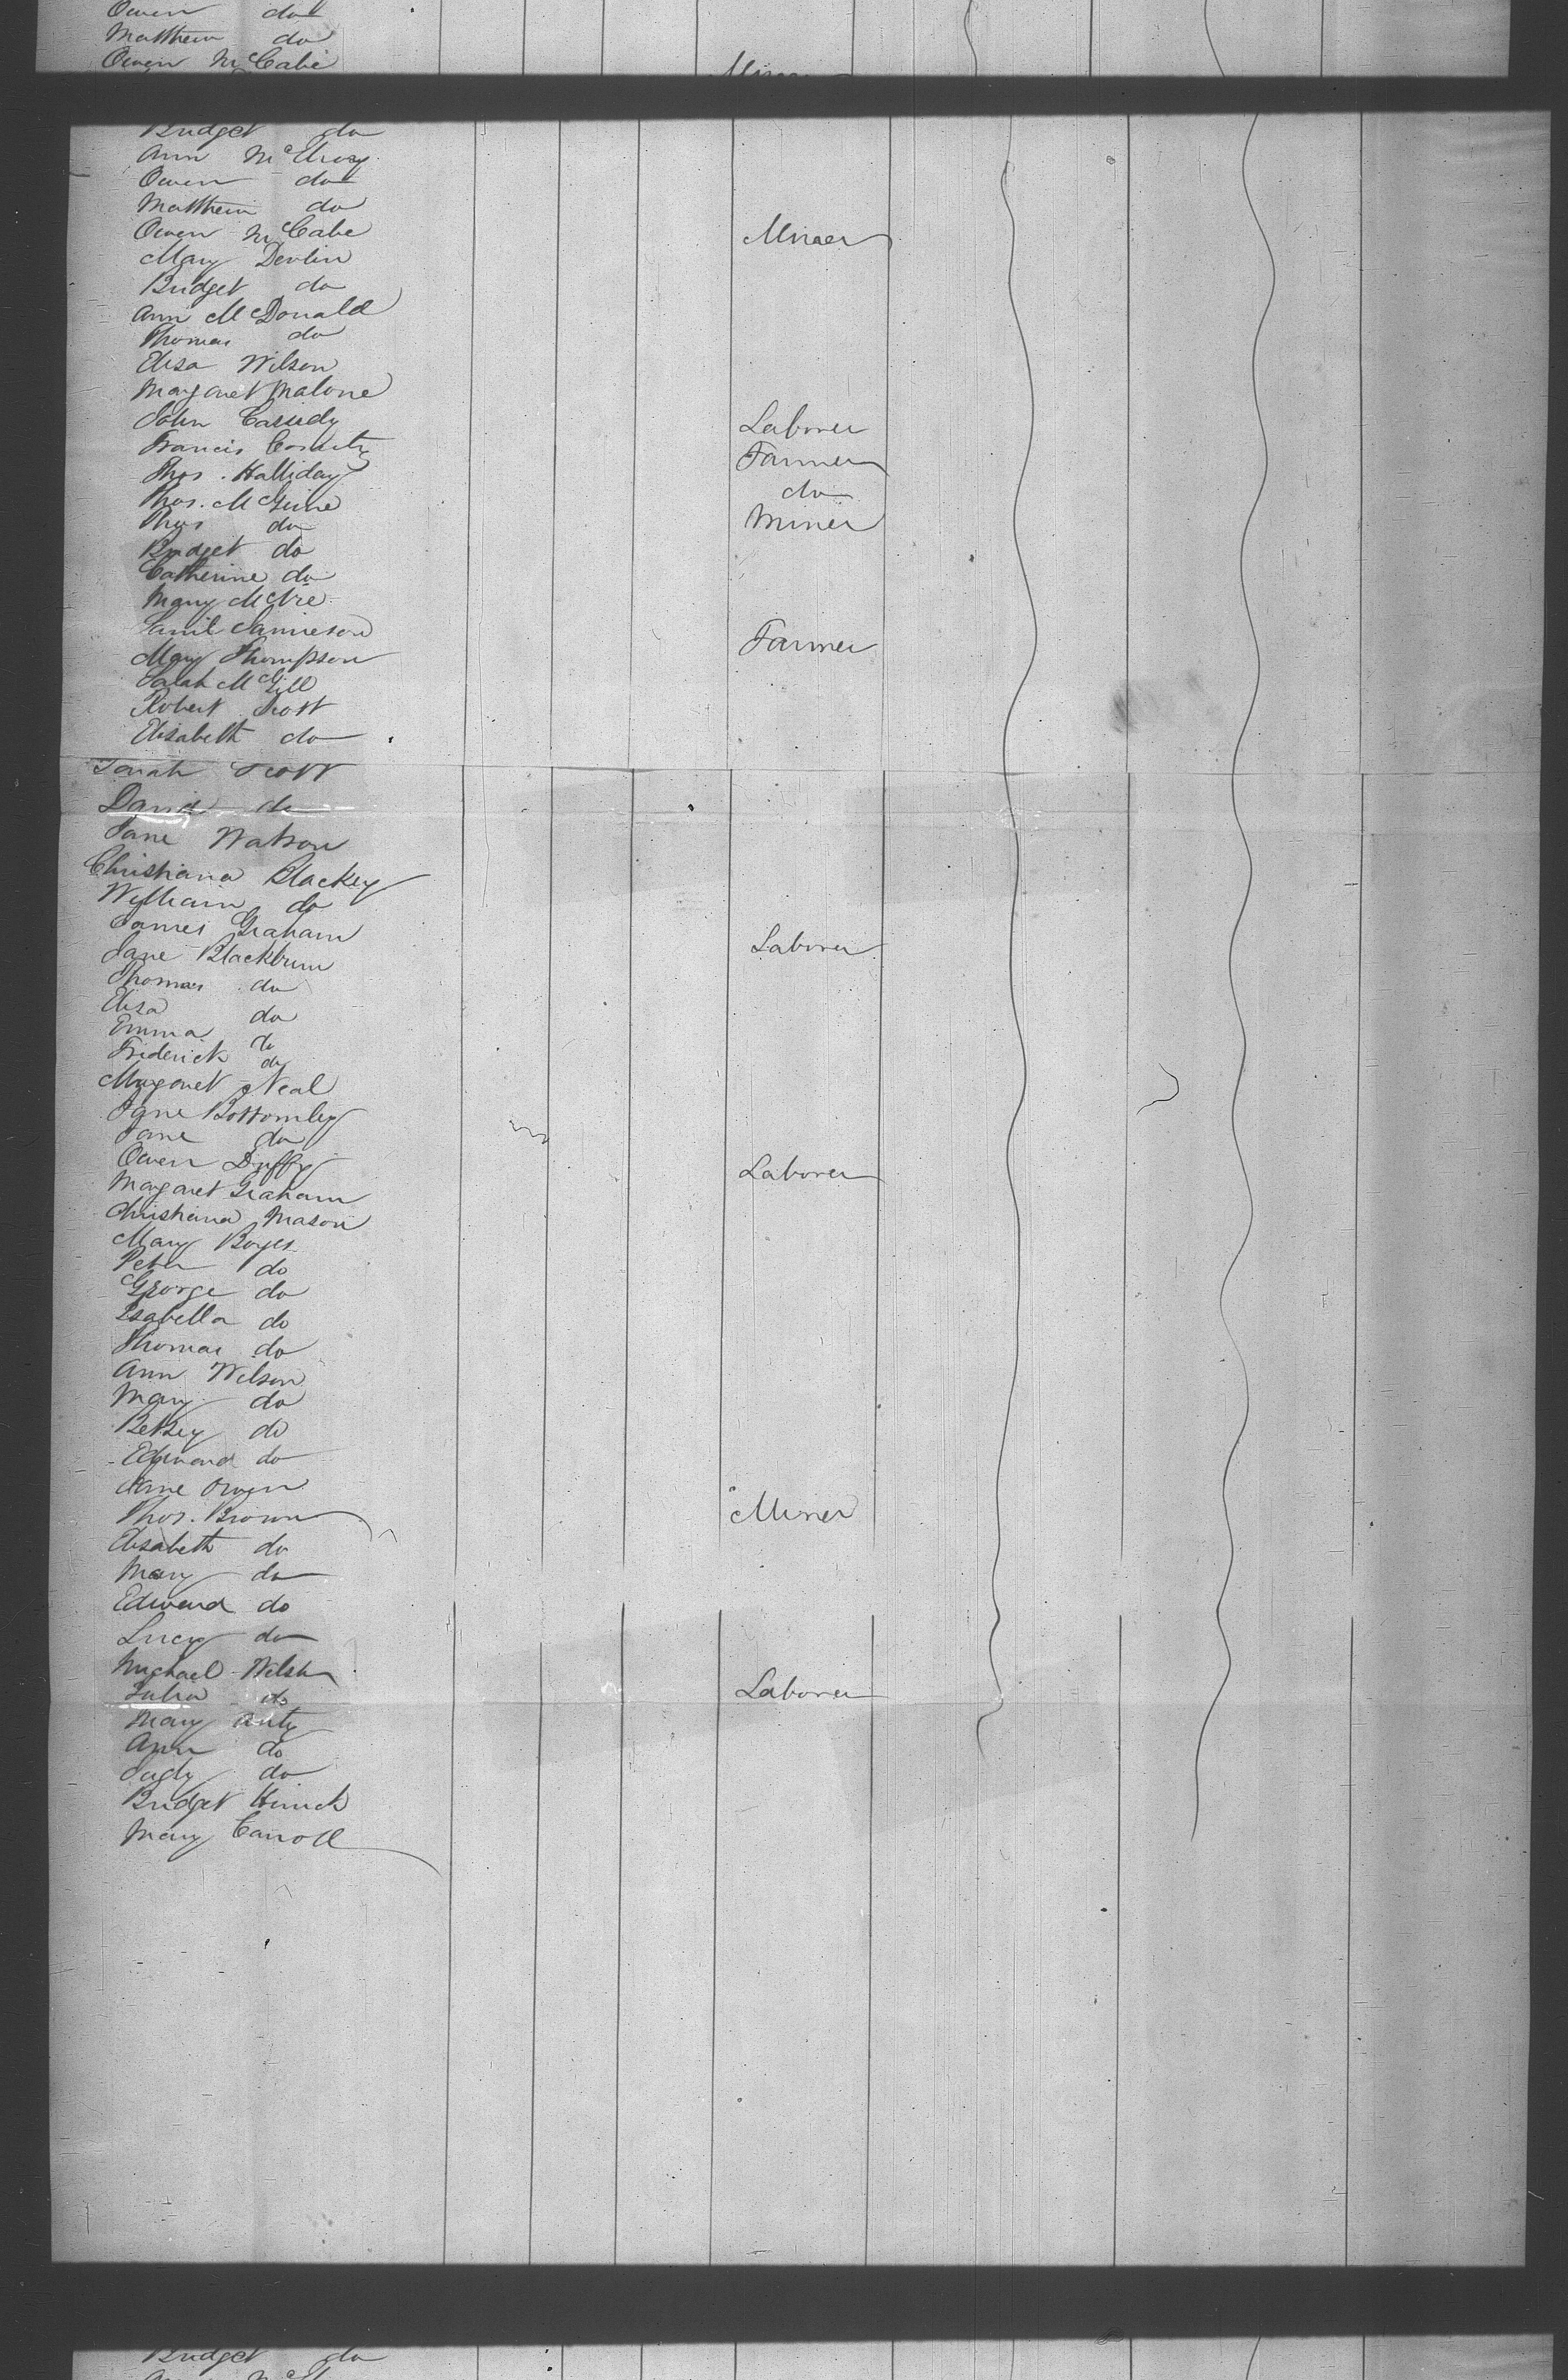 Owen do
Matthew do
Owen McCabe
Miner
Bridget do
Ann McElroy
Owen do
Matthew do
Owen McCabe Miner
Mary Devlin
Bridget do
Ann McDonald
Thomas do
Elisa Wilson
Margaret Malone
John Cassidy Laborer
Francis Farmer
Thos. Halliday do
Thos. McGuire Miner
Thos do
Bridget do
Catherine do
Mary
Saml Jamieson Farmer
Mary Thompson
Sarah McGill
Robert Scott
Elisabeth do
Sarah Scott
David do
Jane Watson
Christiana Blackey
William do
James Graham Laborer
Jane Blackburn
Thomas do
Elisa do
Emma do
Friderick do
Margaret Neal
Jane Bottomley
Jane do
Owen Duffy Laborer
Margaret Graham
Christiana Mason
Mary Boyes
Peter do
George do
Isabella do
Thomas do
Ann Wilson
Mary do
Betsey do
Edward do
Jane Owen
Thos. Brown Miner
Elisabeth do
Mary do
Edward do
Lucy do
Michael Welsh Laborer
Julia do
Mary
Ann do
do
Bridget
Mary Carroll
Bridget do